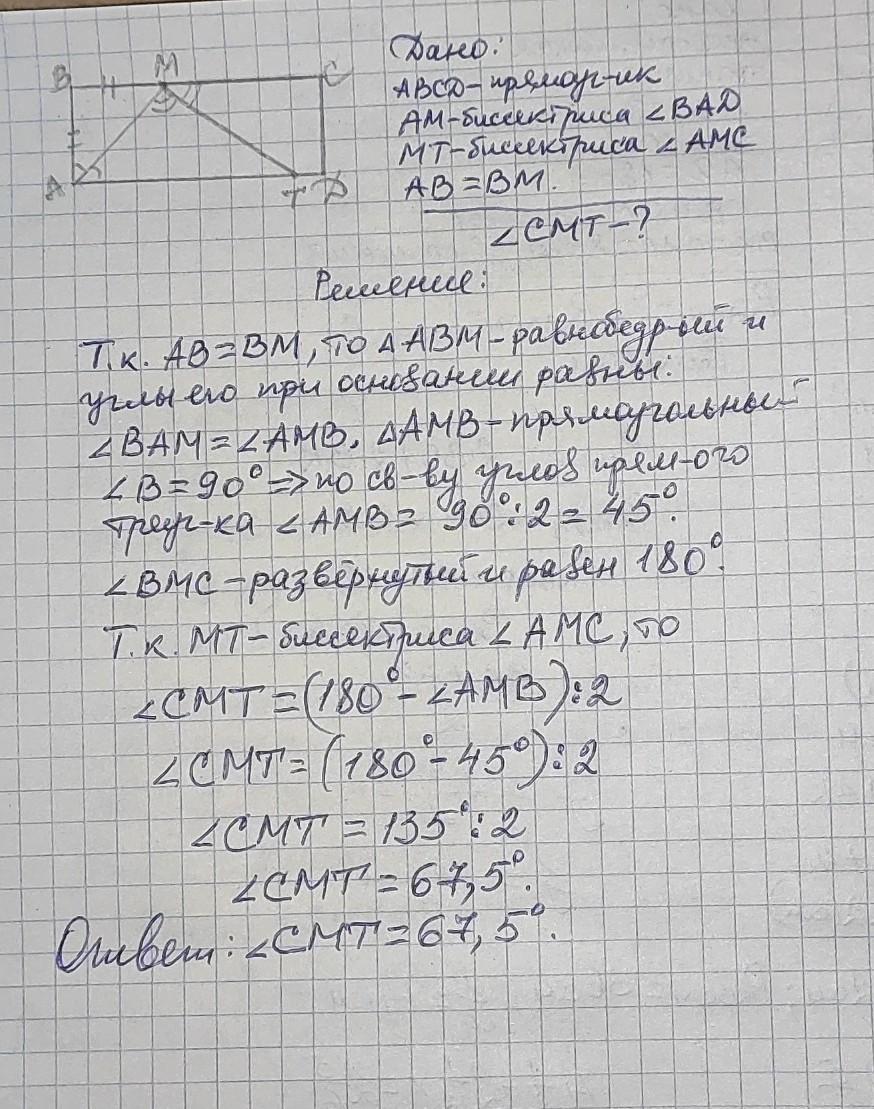 B M C
A T D
Дано:
ABCD-прямоуг-ик
AM-биссектриса ∠BAD
MT-биссектриса ∠AMC
AB=BM.
∠CMT-?
Решение:
Т.к. AB=BM, то △ABM-равнобедр-ый и
углы его при основании равны:
∠BAM=∠AMB. △AMB-прямоугольный
∠B=90°=>по св-ву углов прям-ого
треуг-ка ∠AMB= 90°:2=45°.
∠BMC-развёрнутый и равен 180°.
Т.к. MT-биссектриса ∠AMC, то
∠CMT=(180°-∠AMB):2
∠CMT=(180°-45°):2
∠CMT=135°:2
∠CMT=67,5°.
Ответ: ∠CMT=67,5°.